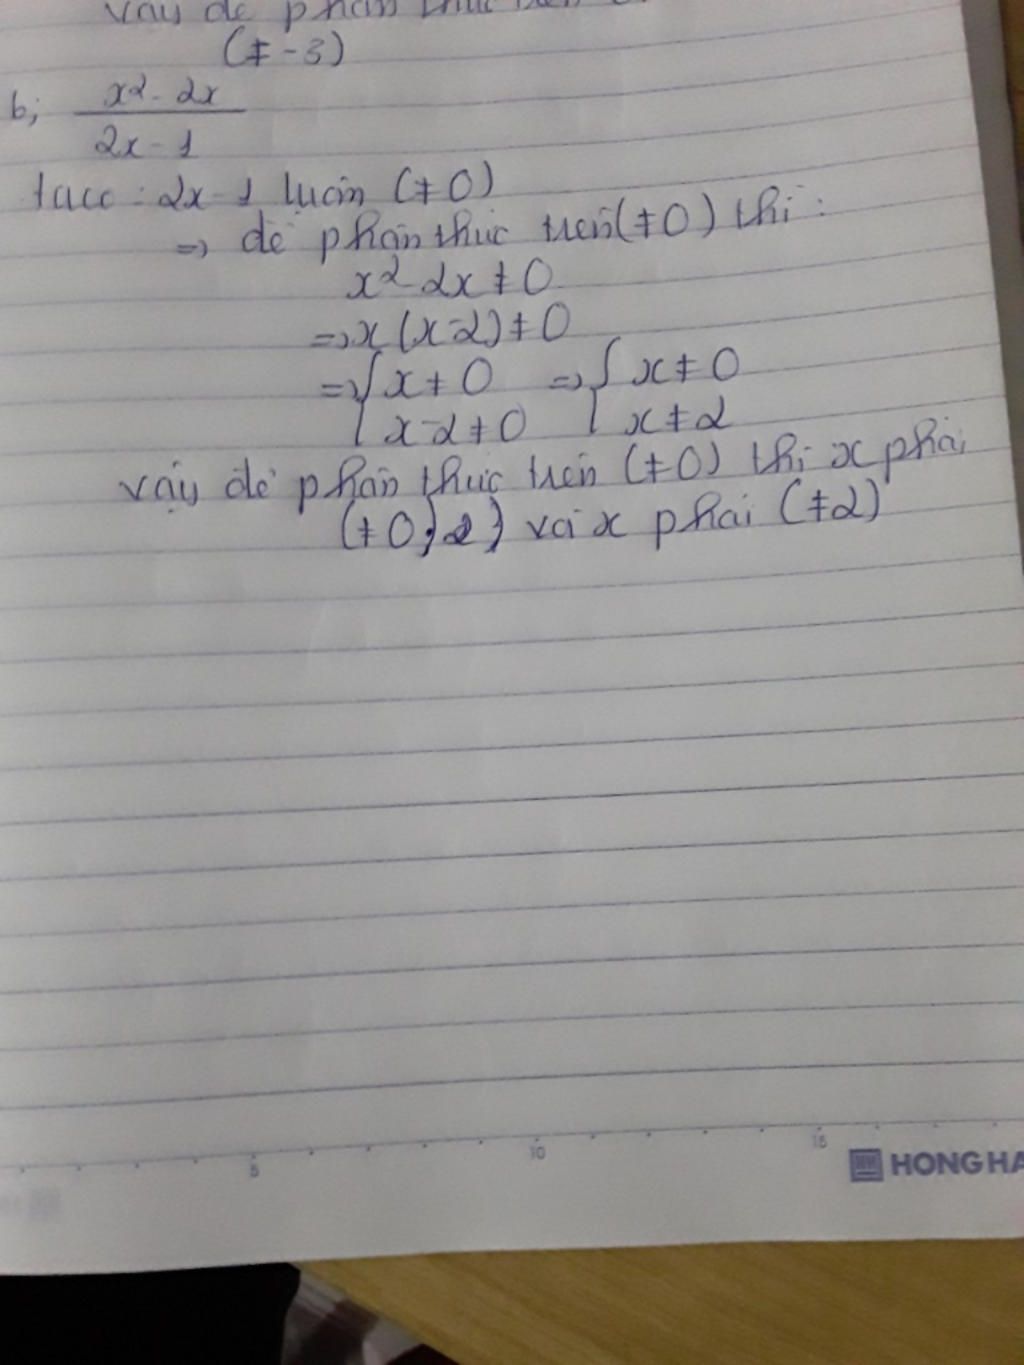 vậy để phân thức trên
(≠ -3)
b; x² - 2x
2x - 1
tacc : 2x - 1 luôn (≠ 0)
=> để phân thức trên (≠ 0) thì :
x² - 2x ≠ 0
=> x (x - 2) ≠ 0
=> { x ≠ 0 => { x ≠ 0
x - 2 ≠ 0 x ≠ 2
vậy để phân thức trên (≠ 0) thì x phải
(≠ 0) và x phải (≠ 2)
5 10 15
HONG HA